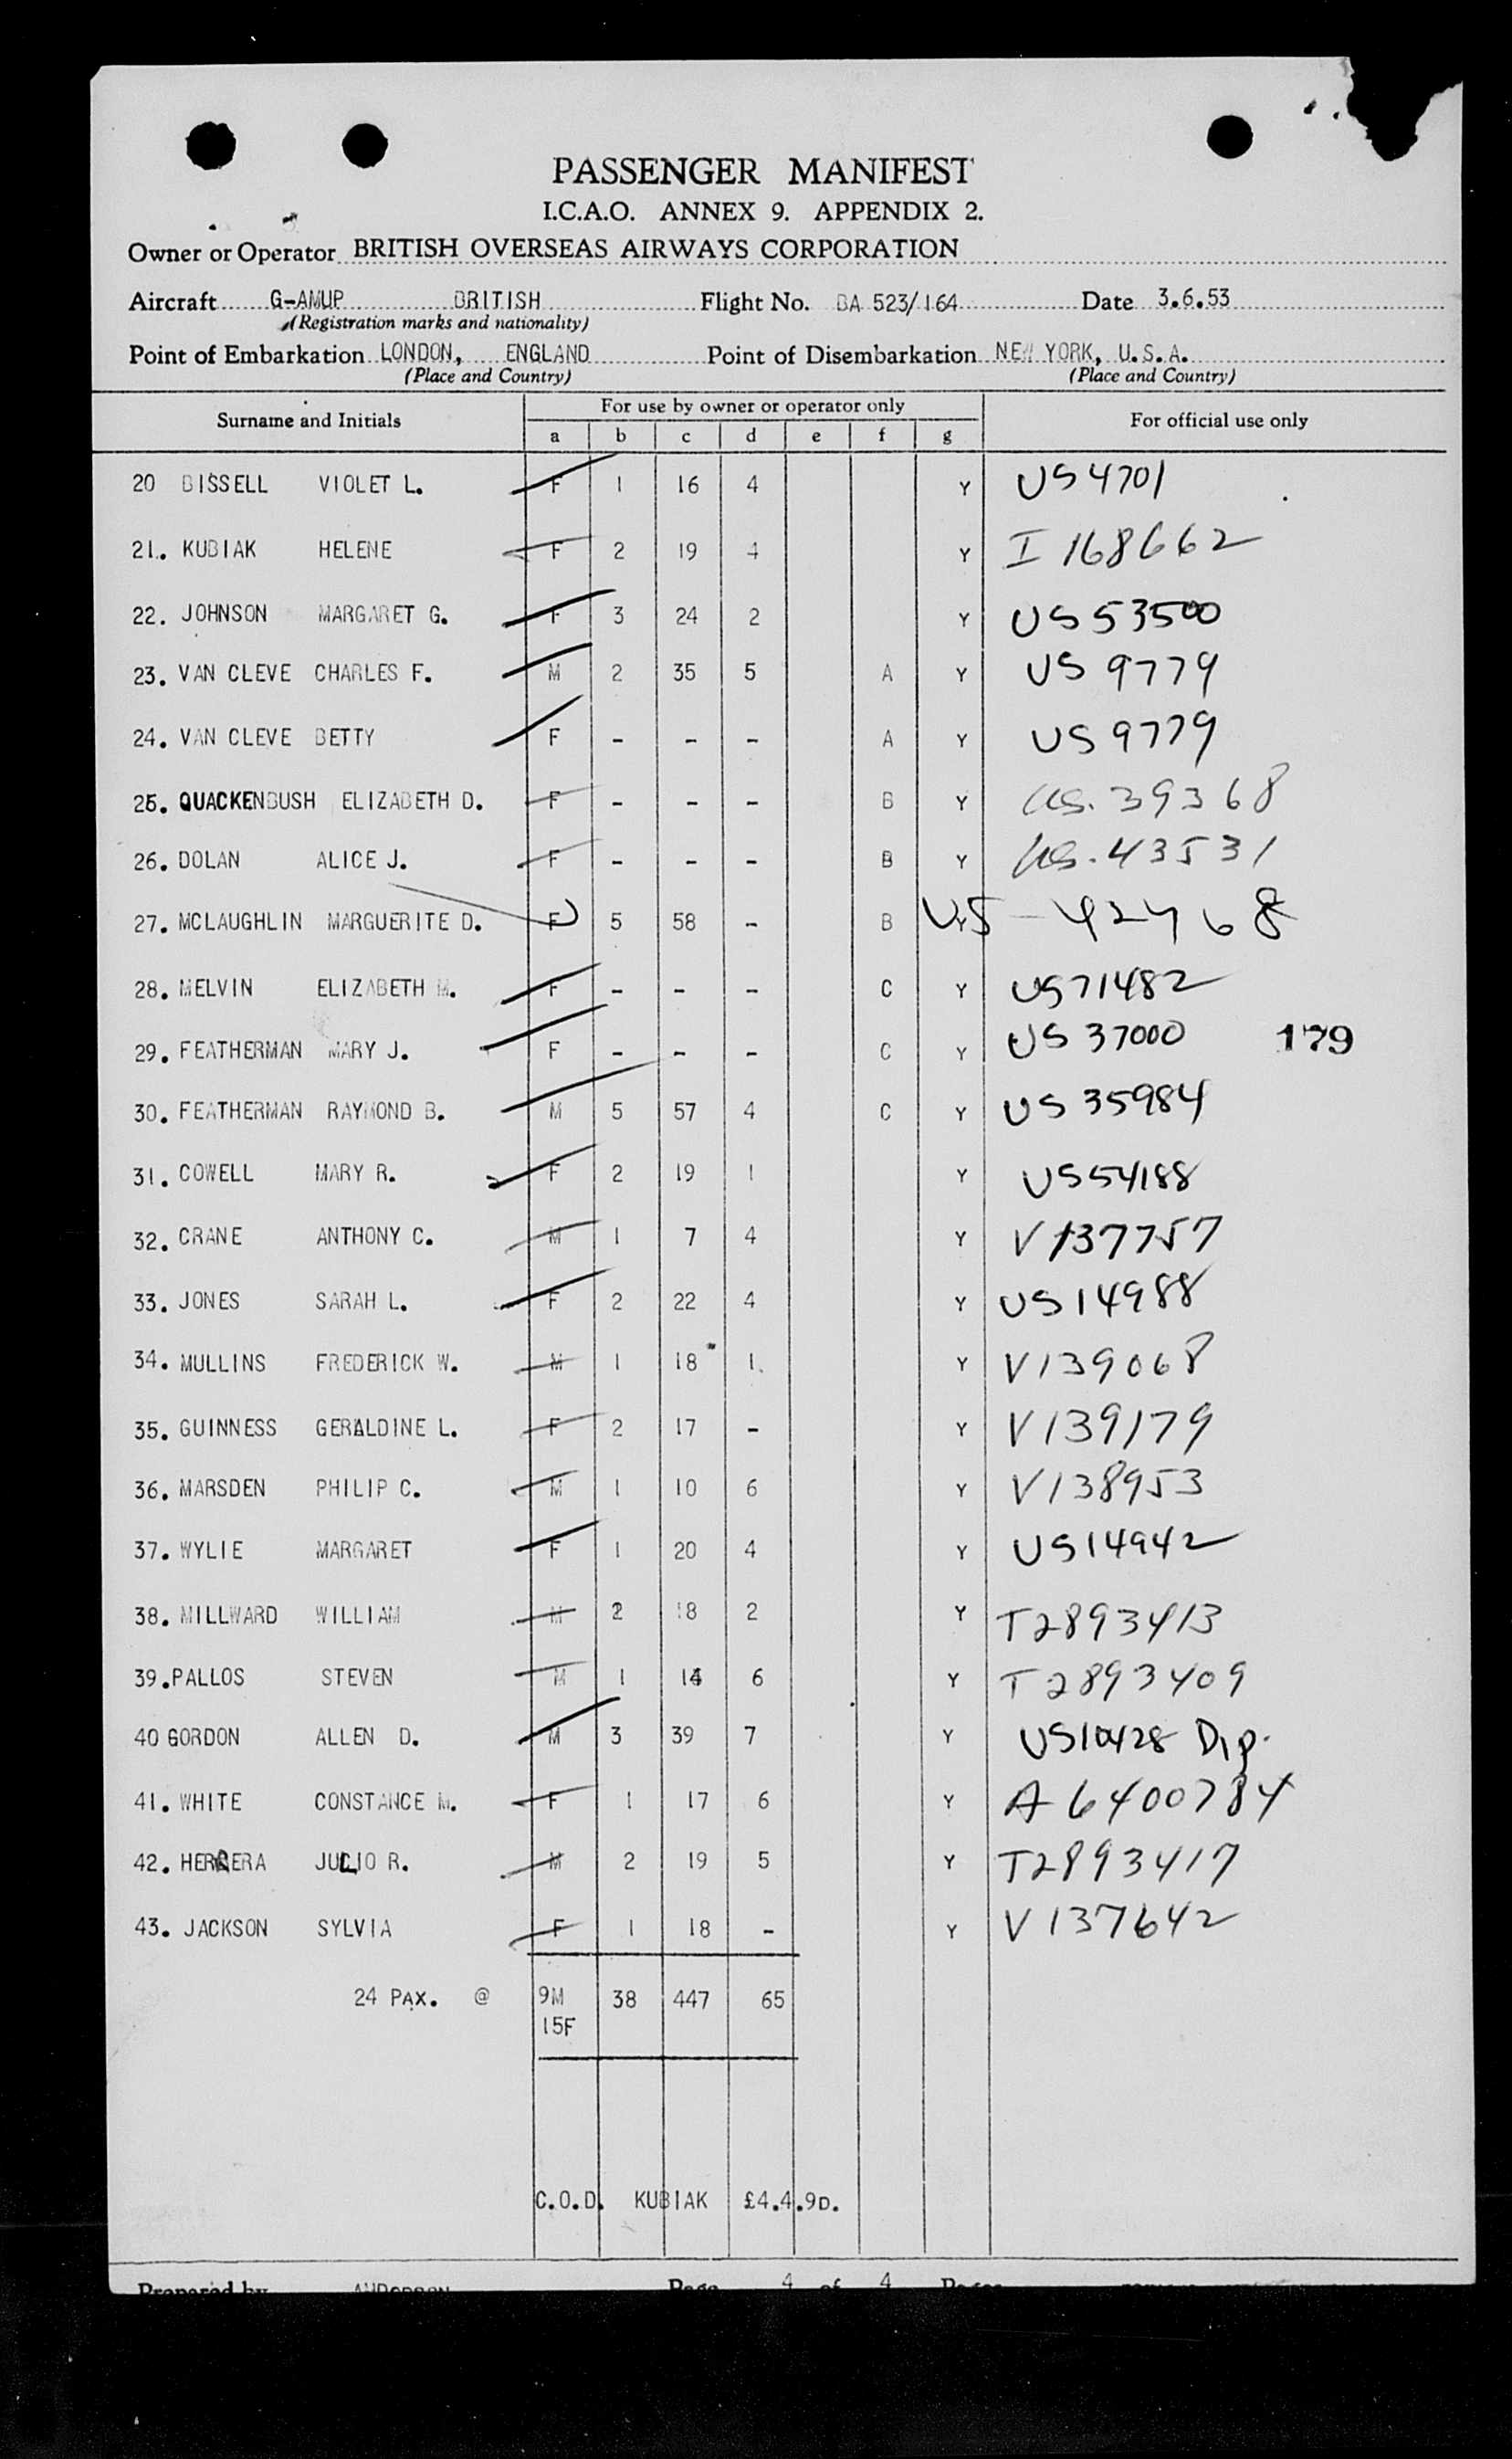 PASSENGER MANIFEST
I.C.A.O. ANNEX 9. APPENDIX 2.
Owner or Operator BRITISH OVERSEAS AIRWAYS CORPORATION
Aircraft G-AMUP BRITISH Flight No. BA 523/164 Date 3.6.53
(Registration marks and nationality)
Point of Embarkation LONDON, ENGLAND Point of Disembarkation NEW YORK, U.S.A.
(Place and Country) (Place and Country)
Surname and Initials For use by owner or operator only For official use only
a b c d e f g
20 BISSELL VIOLET L. F 1 16 4 Y US 4701
21. KUBIAK HELENE F 2 19 4 Y I 168662
22. JOHNSON MARGARET G. F 3 24 2 Y US 53500
23. VAN CLEVE CHARLES F. M 2 35 5 A Y US 9779
24. VAN CLEVE BETTY F - - - A Y US 9779
25. QUACKENBUSH ELIZABETH D. F - - - B Y US. 39368
26. DOLAN ALICE J. F - - - B Y US. 43531
27. MCLAUGHLIN MARGUERITE D. F 5 58 - B Y US - 42768
28. MELVIN ELIZABETH M. F - - - C Y US 71482
29. FEATHERMAN MARY J. F - - - C Y US 37000 179
30. FEATHERMAN RAYMOND B. M 5 57 4 C Y US 35984
31. COWELL MARY R. F 2 19 1 Y US 54188
32. CRANE ANTHONY C. M 1 7 4 Y V 137757
33. JONES SARAH L. F 2 22 4 Y US 14988
34. MULLINS FREDERICK W. M 1 18 1 Y V139068
35. GUINNESS GERALDINE L. F 2 17 - Y V139179
36. MARSDEN PHILIP C. M 1 10 6 Y V138953
37. WYLIE MARGARET F 1 20 4 Y US 14942
38. MILLWARD WILLIAM M 2 18 2 Y T2893413
39. PALLOS STEVEN M 1 14 6 Y T2893409
40 GORDON ALLEN D. M 3 39 7 Y US 10428 Dip.
41. WHITE CONSTANCE M. F 1 17 6 Y A 6400784
42. HERRERA JULIO R. M 2 19 5 Y T2893417
43. JACKSON SYLVIA F 1 18 - Y V 137642
24 PAX. @ 9M 38 447 65
15F
C.O.D. KUBIAK £4.4.9D.
Prepared by Page 4 of 4 Pages